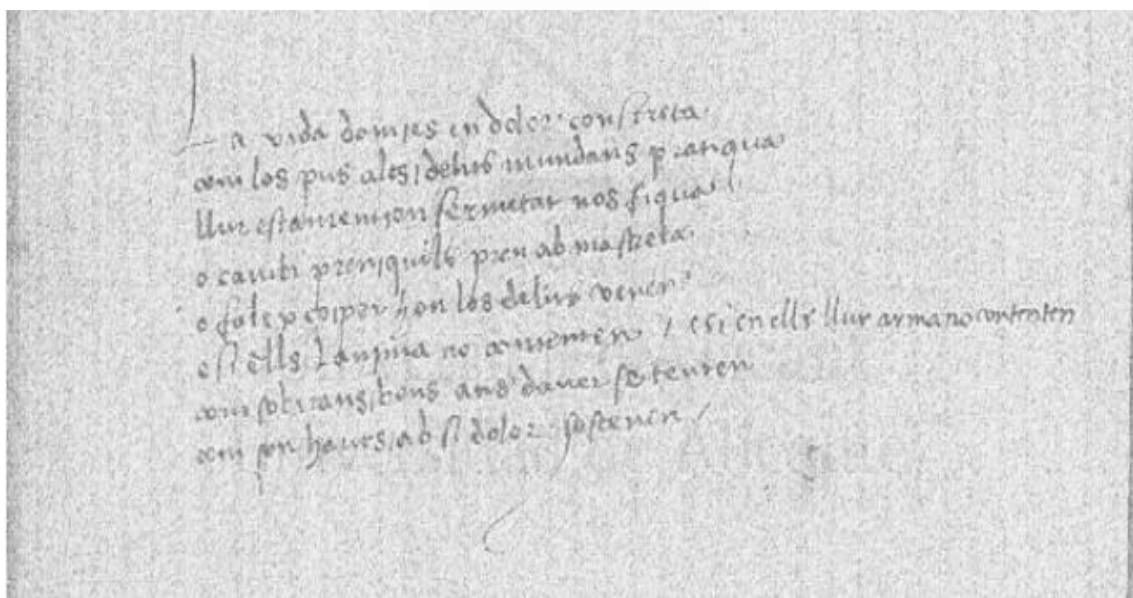 La vida domjes en dolor constreta
com los pus alts delits mundans pratiqua
llur estament non fermetat nos fiqua
o catiu pren quils pren ab ma streta
o foll per hon los delits venen
e si ells no / e si en ells llur arma no contenten
com sobirans bons ans daver se tenren
com son hauts ab si dolor sostenen /